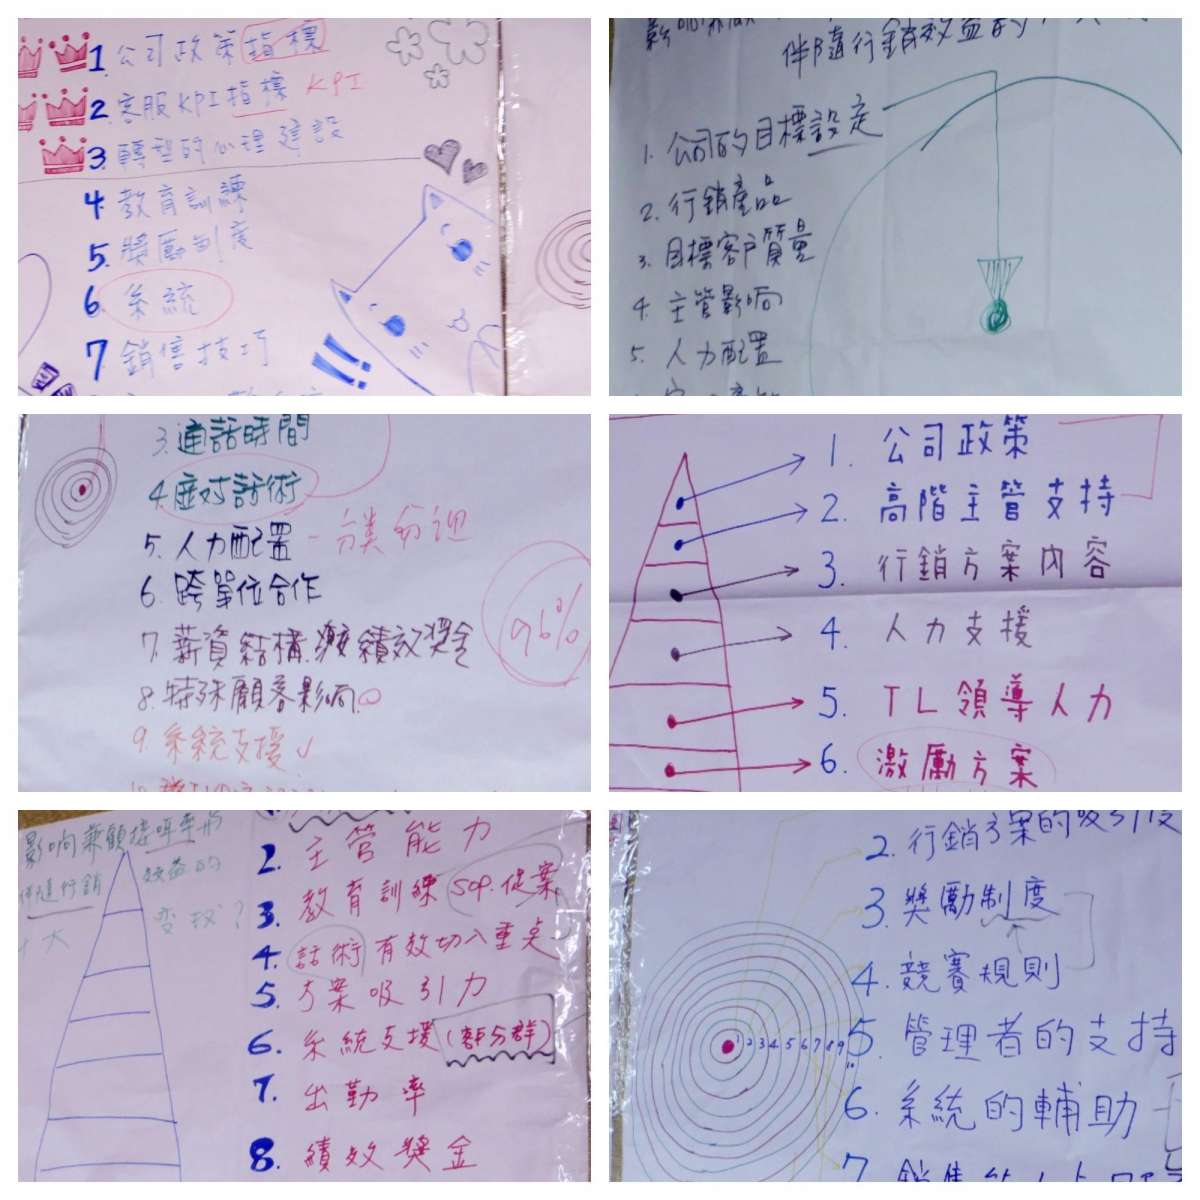 1. 公司政策指標
2. 客服KPI指標 KPI
3. 轉型的心理建設
4. 教育訓練
5. 獎勵制度
6. 系統
7. 銷售技巧
伴隨行銷效益的
1. 公司的目標設定
2. 行銷產品
3. 目標客戶質量
4. 主管影响
5. 人力配置
3. 通話時間
4. 應对話術
5. 人力配置 - 分类分迎
6. 跨單位合作
7. 薪資結構 績效獎金
8. 特殊顧客影响
9. 系統支援 ✓
96%
1. 公司政策
2. 高階主管支持
3. 行銷方案內容
4. 人力支援
5. TL領導人力
6. 激勵方案
影响兼顧接听率於
伴隨行銷 效益的
十大 变数?
2. 主管能力
3. 教育訓練 SOP.提案
4. 話術有效切入重点
5. 方案吸引力
6. 系統支援(客戶分群)
7. 出勤率
8. 績效獎金
2. 行銷方案的吸引度
3. 獎勵制度
4. 競賽規則
5. 管理者的支持
6. 系統的輔助
7.
1 2 3 4 5 6 7 8 9 10